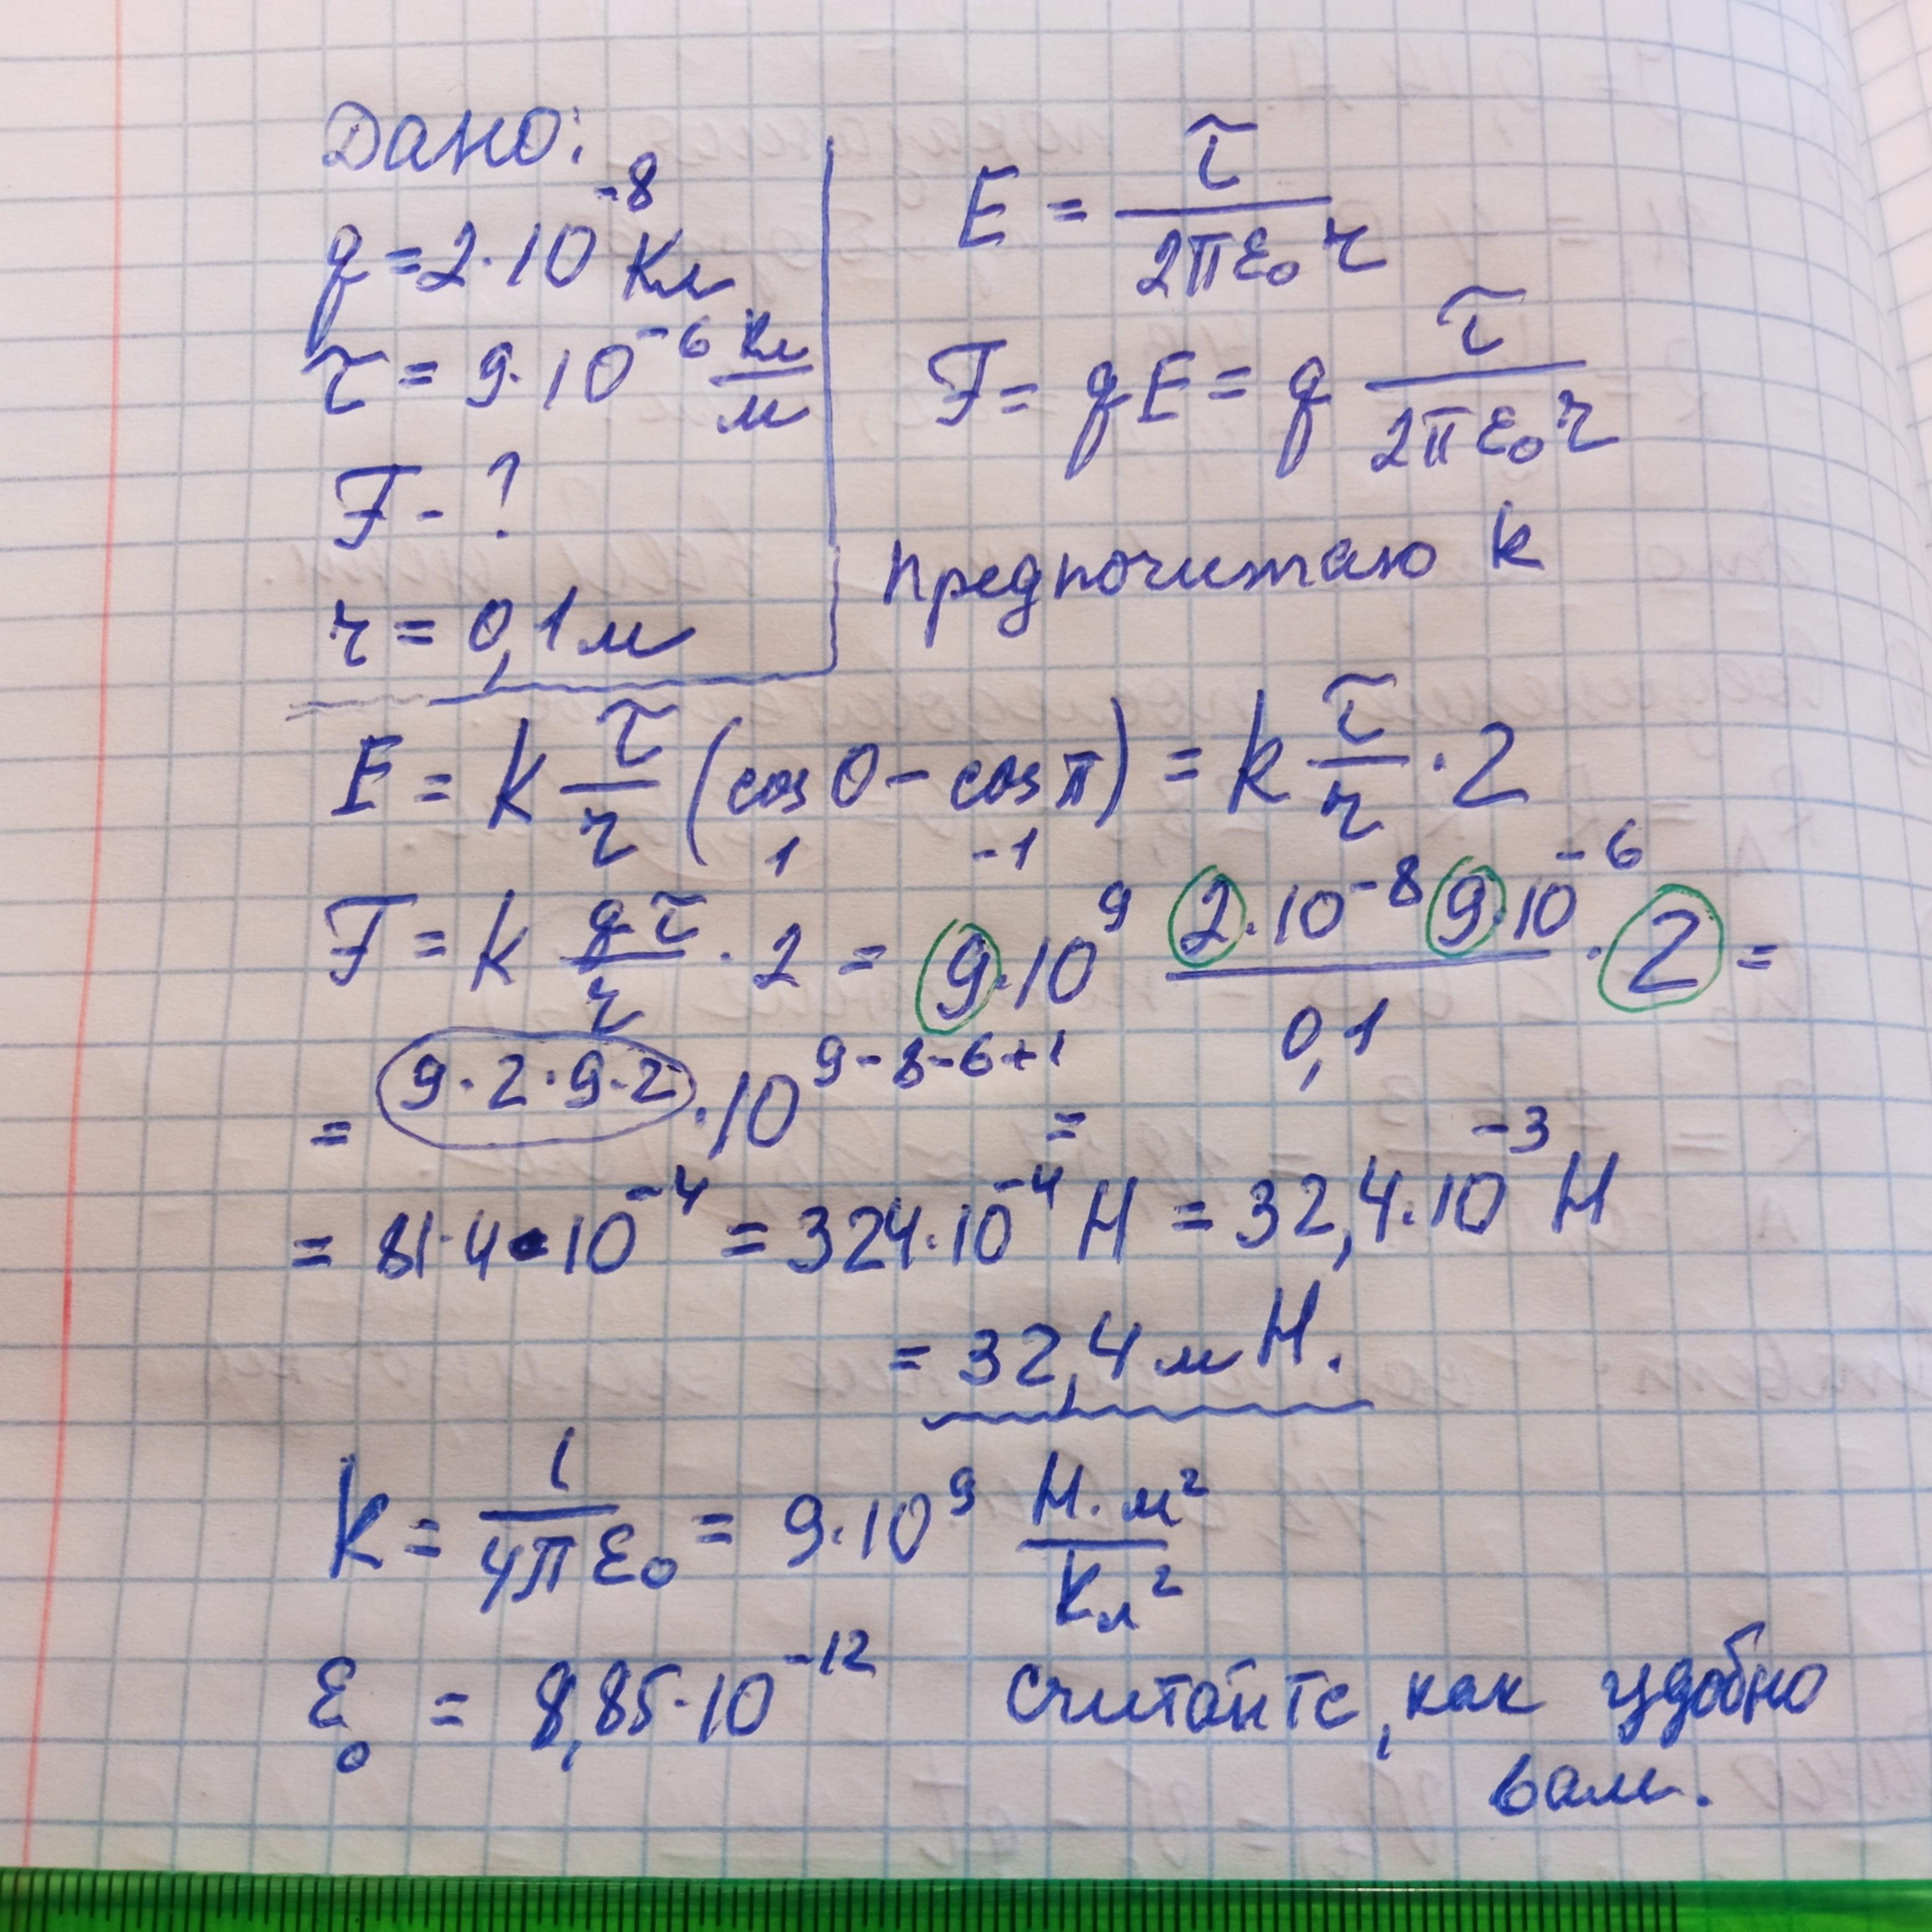 Дано:
q = 2·10⁻⁸ Кл
τ = 9·10⁻⁶ Кл/м
F - ?
r = 0,1 м
E = τ/(2πε₀r)
F = qE = q τ/(2πε₀r)
предпочитаю k
E = k τ/r (cos 0 - cos π) = k τ/r · 2
1 -1
F = k qτ/r · 2 = 9·10⁹ (2·10⁻⁸ 9·10⁻⁶)/0,1 · 2 =
= 9·2·9·2·10⁹⁻⁸⁻⁶⁺¹ =
= 81·4·10⁻⁴ = 324·10⁻⁴ Н = 32,4·10⁻³ Н
= 32,4 мН.
k = 1/(4πε₀) = 9·10⁹ Н·м²/Кл²
ε₀ = 8,85·10⁻¹² считайте, как удобно
вам.